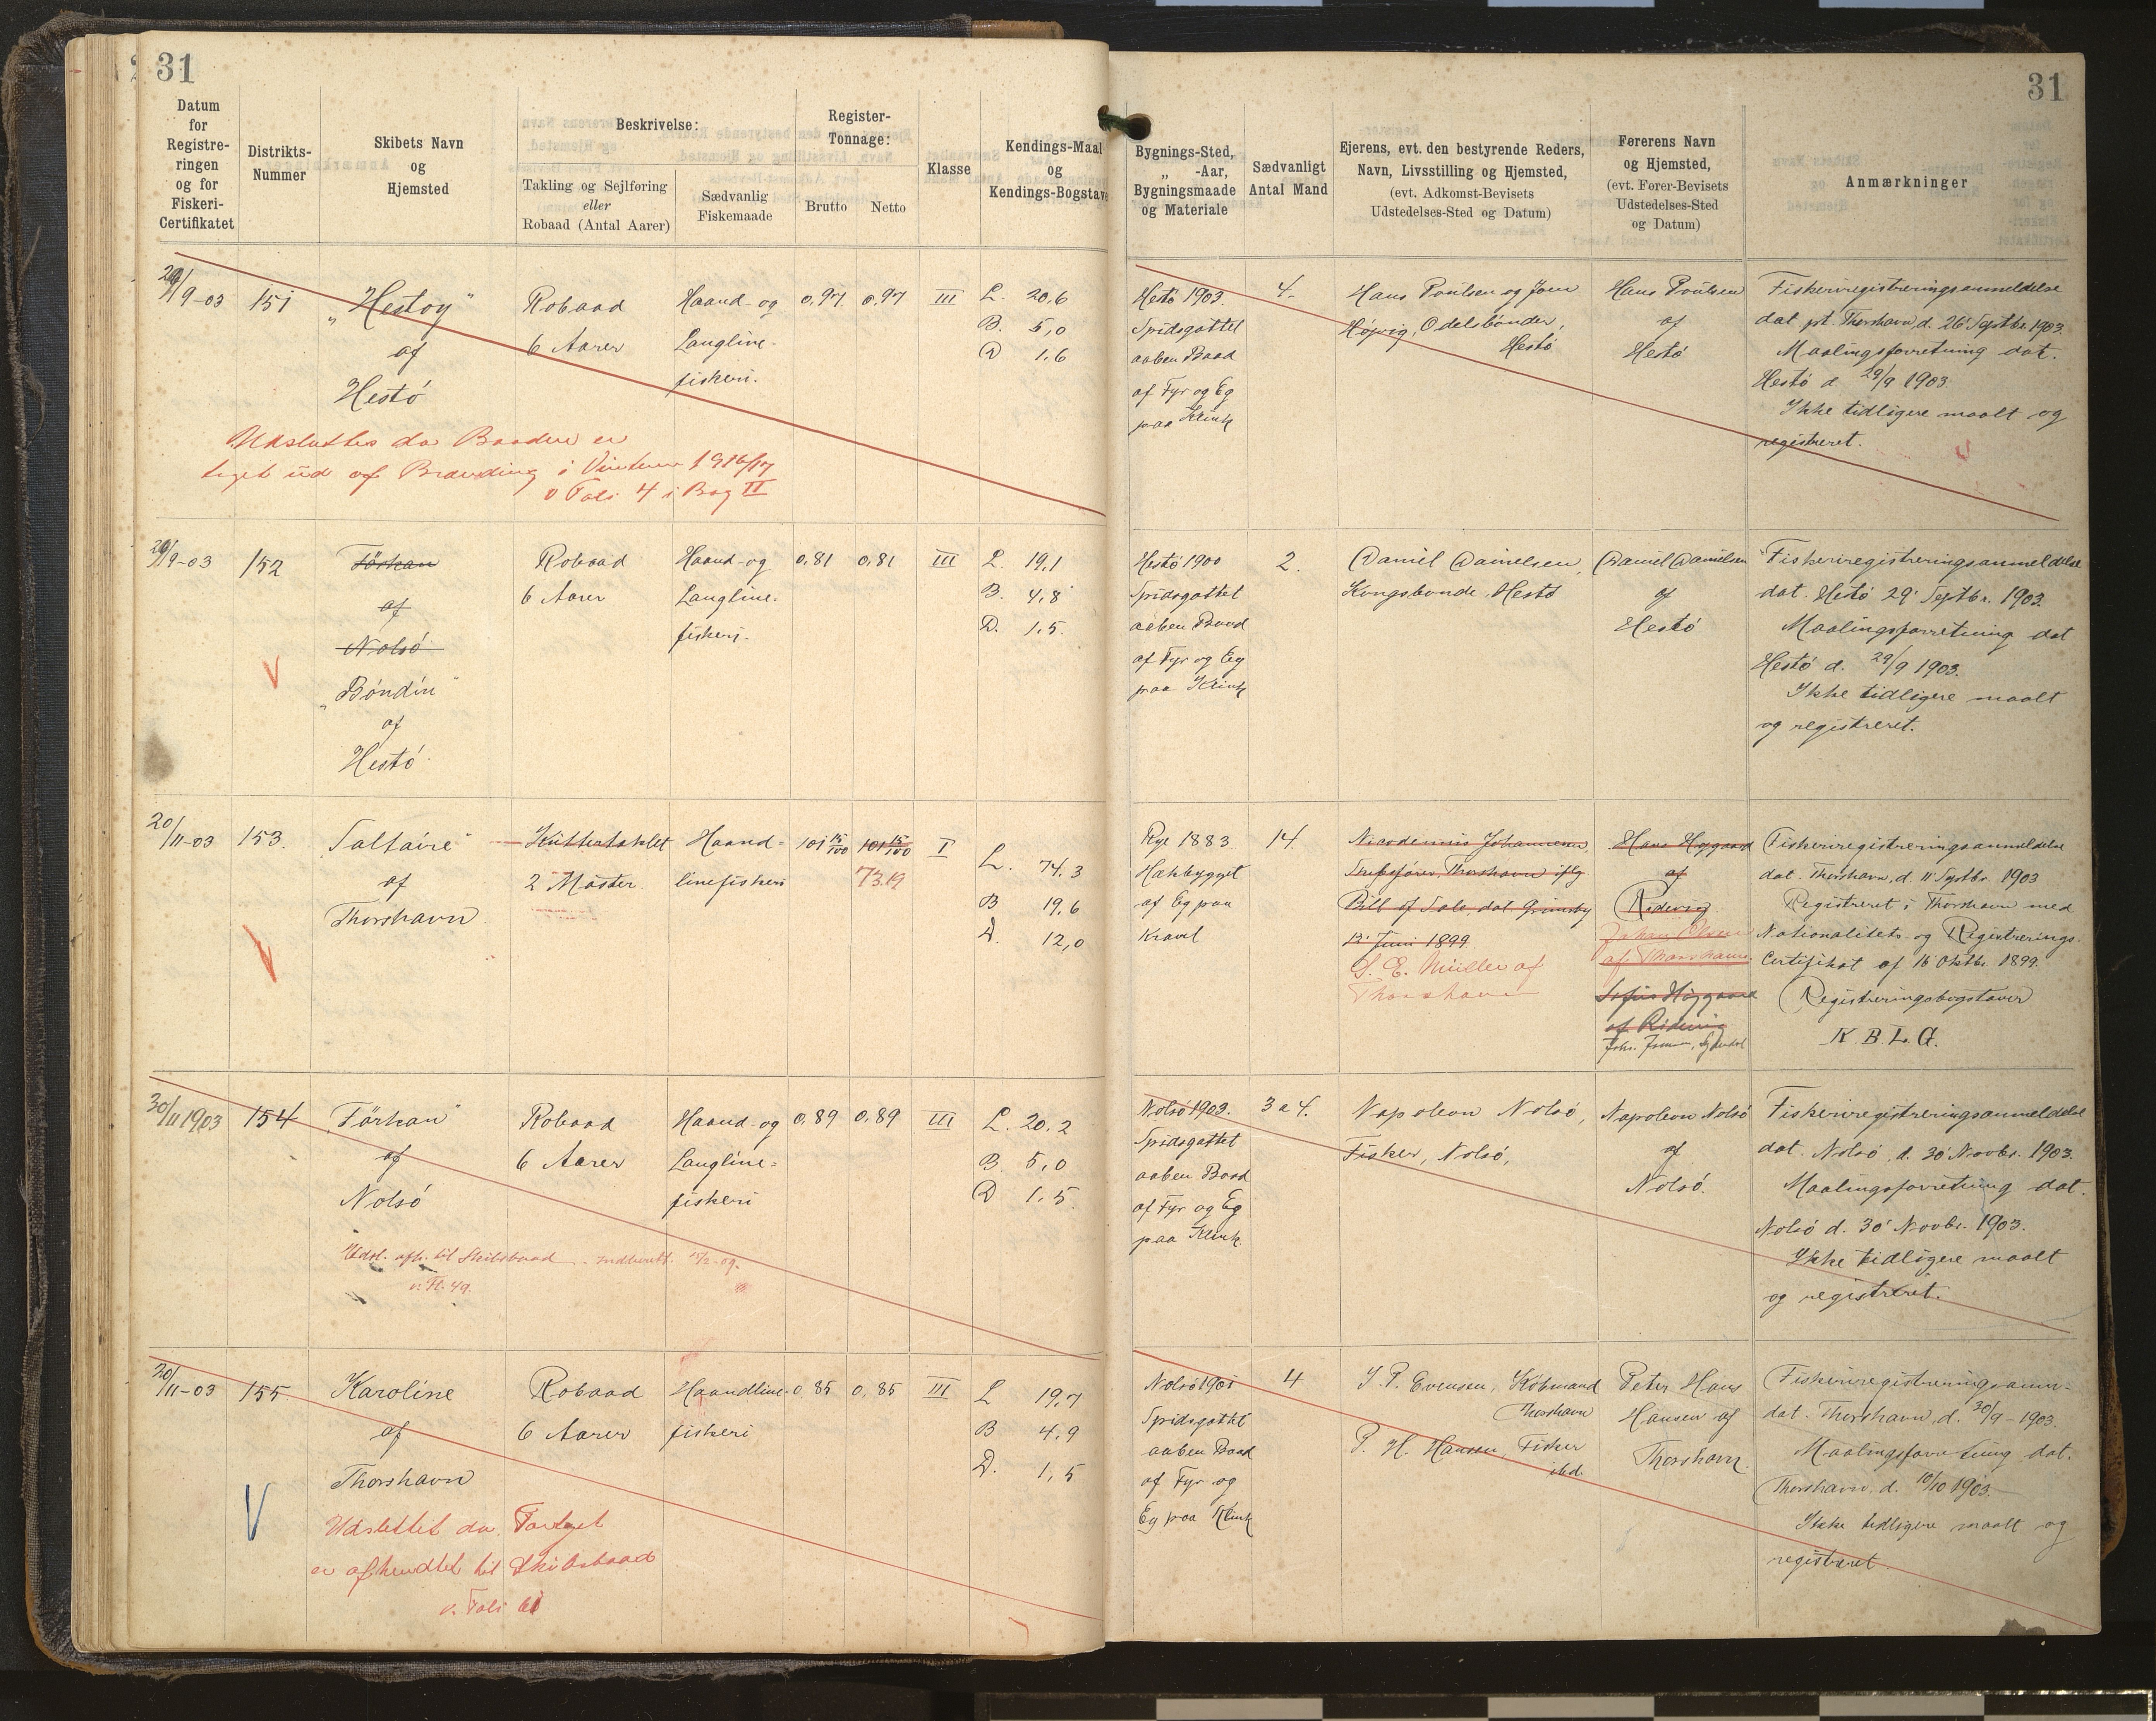 31
31
Datum
for
Registre-
ringen
og for
Fiskeri-
Certifikatet
Distrikts-
Nummer
Skibets Navn
og
Hjemsted
Beskrivelse:
Takling og Sejlføring
eller
Robaad (Antal Aarer)
Sædvanlig
Fiskemaade
Register-
Tonnage:
Brutto
Netto
Klasse
Kendings-Maal
og
Kendings-Bogstave
Bygnings-Sted,
„ -Aar,
Bygningsmaade
og Materiale
Sædvanligt
Antal Mand
Ejerens, evt. den bestyrende Reders,
Navn, Livsstilling og Hjemsted,
(evt. Adkomst-Bevisets
Udstedelses-Sted og Datum)
Førerens Navn
og Hjemsted,
(evt. Fører-Bevisets
Udstedelses-Sted
og Datum)
Anmærkninger
29/9-03
151
„Hestoy"
af
Hestó
Robaad
6 Aarer
Haand- og
Langline-
fiskeri.
0,97
0,97
III
L. 20,6
B. 5,0
D 1,6
Hestó 1903.
Spidsgattet
aaben Baad
af Fyr og Eg
paa Klink
4.
Hans Poulsen og Joen
Højvig, Odelsbónder,
Hestó
Hans Poulsen
af
Hestó
Fiskeriregistreringsanmeldelse
dat. pt. Thorshavn, d. 26' Septbr. 1903.
Maalingsforretning dat.
Hestó d. 29/9 1903.
Ikke tidligere maalt og
registreret.
Udslettes da Baaden er
taget ud af Branding i Vinteren 1916/17
v Foli 4 i Bog II
29/9-03
152
Förkan
af
Nolsó
„Bóndin"
af
Hestó
Robaad
6 Aarer
Haand- og
Langline-
fiskeri.
0,81
0,81
III
L. 19,1
B. 4,8
D. 1,5
Hestó 1900
Spidsgattet
aaben Baad
af Fyr og Eg
paa Klink
2.
Daniel Danielsen,
Kongsbonde, Hestó
Daniel Danielsen
af
Hestó
Fiskeriregistreringsanmeldelse
dat. Hestó 29' Septbr. 1903.
Maalingsforretning dat
Hestó d. 29/9 1903.
Ikke tidligere maalt
og registreret.
20/11-03
153.
Saltaire"
af
Thorshavn
Kuttertaklet
2 Master.
Haand-
linefiskeri
101 15/100
101 15/100
73.19
I
L. 74,3
B 19,6
D. 12,0
Rye 1883
Hækbygget
af Eg paa
Kravel
14.
Nicodemus Johannesen,
Skibsfører, Thorshavn iflg
Bill of Sale, dat Grimsby
12' Juni 1899.
S. E. Müller af
Thorshavn
Hans Høgaard
af
Ridevig
Johan Olsen
af Thorshavn.
Sofus Høygaard
af Ridevig
Fiskeriregistreringsanmeldelse
dat. Thorshavn, d. 11 Septbr. 1903
Registreret i Thorshavn med
Nationalitets- og Registrerings-
Certifikat af 16' Oktbr. 1899.
(Registreringsbogstaver
K. B. L. G.
30/11 1903
154
„Förkan"
af
Nolsó
Robaad
6 Aarer
Haand- og
Langline-
fiskeri
0,89
0,89
III
L. 20,2
B. 5,0
D 1,5
Nolsó 1903.
Spidsgattet
aaben Baad
af Fyr og Eg
paa Klink.
3 a 4.
Napoleon Nolsó,
Fisker, Nolsó,
Napoleon Nolsó
af
Nolsó.
Fiskeriregistreringsanmeldelse
dat. Nolsó, d. 30' Novbr. 1903.
Maalingsforretning dat.
Nolsó d. 30' Novbr. 1903.
Ikke tidligere maalt
og registreret.
Udsl. afh. til Skibsbaad
v. Fl. 49.
20/11-03
155
Karoline
af
Thorshavn
Robaad
6 Aarer
Haandline-
fiskeri
0,85
0,85
III
L 19,7
B 4,9
D. 1,5
Nolsó 1901
Spidsgattet
aaben Baad
af Fyr og
Eg paa Klink
4
J. P. Evensen, Købmand
Thorshavn
P. H. Hansen, Fisker
ibd.
Peter Hans
Hansen af
Thorshavn.
Fiskeriregistreringsanm-
dat. Thorshavn, d. 30/9-1903.
Maalingsforretning dat.
Thorshavn, d. 10/10 1903.
Ikke tidligere maalt og
registreret
Udslettet da Fartøjet
er afhændet til Skibsbaad
v. Foli 61